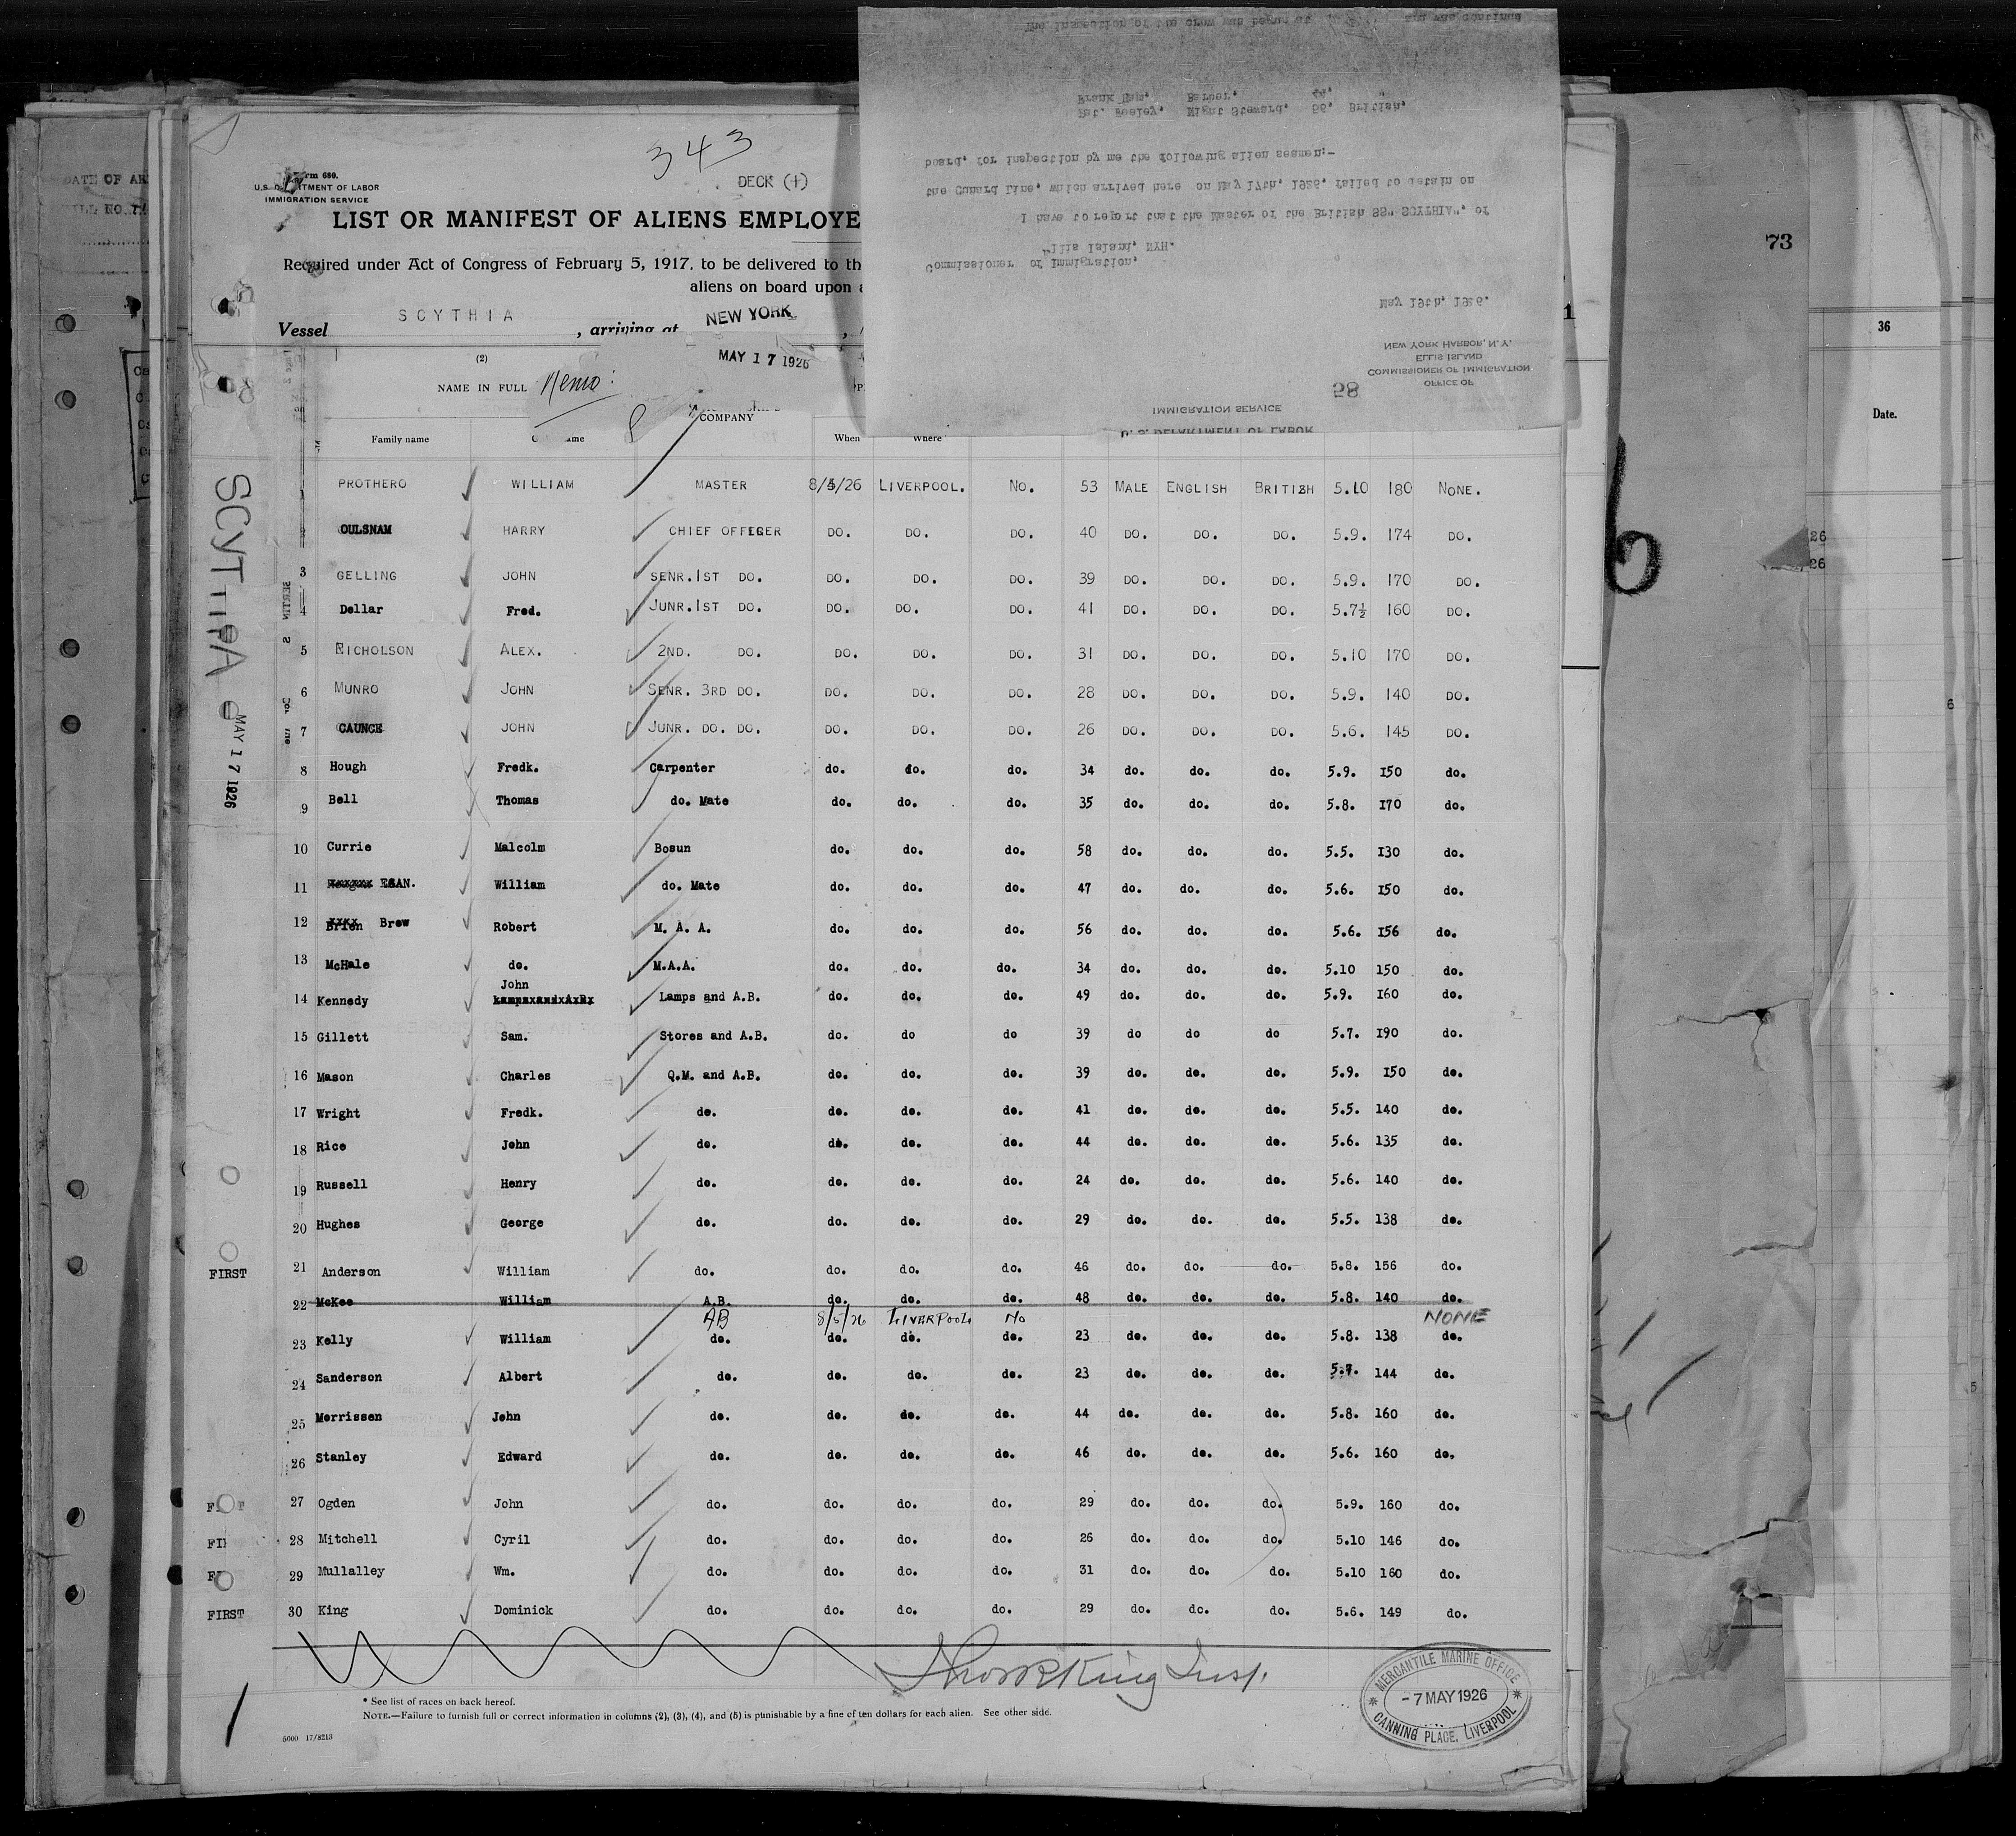 343
Form 680.
U.S. DEPARTMENT OF LABOR
IMMIGRATION SERVICE
DECK (+)
LIST OR MANIFEST OF ALIENS EMPLOYE
Required under Act of Congress of February 5, 1917, to be delivered to th
aliens on board upon a
Vessel SCYTHIA , arriving at NEW YORK ,
MAY 17 1926
(2)
NAME IN FULL Memo:
COMPANY
Family name When Where
1 PROTHERO WILLIAM MASTER 8/5/26 LIVERPOOL. No. 53 MALE ENGLISH BRITISH 5.10 180 NONE.
2 OULSNAM HARRY CHIEF OFFICER DO. DO. DO. 40 DO. DO. DO. 5.9. 174 DO.
3 GELLING JOHN SENR.1ST DO. DO. DO. DO. 39 DO. DO. DO. 5.9. 170 DO.
4 Dellar Fred. JUNR.1ST DO. DO. DO. DO. 41 DO. DO. DO. 5.7½ 160 DO.
5 NICHOLSON ALEX. 2ND. DO. DO. DO. DO. 31 DO. DO. DO. 5.10 170 DO.
6 MUNRO JOHN SENR. 3RD DO. DO. DO. DO. 28 DO. DO. DO. 5.9. 140 DO.
7 CAUNCE JOHN JUNR. DO. DO. DO. DO. DO. 26 DO. DO. DO. 5.6. 145 DO.
8 Hough Fredk. Carpenter do. do. do. 34 do. do. do. 5.9. 150 do.
9 Bell Thomas do. Mate do. do. do. 35 do. do. do. 5.8. 170 do.
10 Currie Malcolm Bosun do. do. do. 58 do. do. do. 5.5. 130 do.
11 EGAN. William do. Mate do. do. do. 47 do. do. do. 5.6. 150 do.
12 Brien Brew Robert M. A. A. do. do. do. 56 do. do. do. 5.6. 156 do.
13 McHale do. M.A.A. do. do. do. 34 do. do. do. 5.10 150 do.
John
14 Kennedy Lamps and A.B. do. do. do. 49 do. do. do. 5.9. 160 do.
15 Gillett Sam. Stores and A.B. do. do do 39 do do do 5.7. 190 do.
16 Mason Charles Q.M. and A.B. do. do. do. 39 do. do. do. 5.9. 150 do.
17 Wright Fredk. do. do. do. do. 41 do. do. do. 5.5. 140 do.
18 Rice John do. do. do. do. 44 do. do. do. 5.6. 135 do.
19 Russell Henry do. do. do. do. 24 do. do. do. 5.6. 140 do.
20 Hughes George do. do. do. do. 29 do. do. do. 5.5. 138 do.
FIRST 21 Anderson William do. do. do. do. 46 do. do. do. 5.8. 156 do.
22 McKee William A.B. do. do. do. 48 do. do. do. 5.8. 140 do.
AB 8/5/26 LIVERPOOL No NONE
23 Kelly William do. do. do. do. 23 do. do. do. 5.8. 138 do.
24 Sanderson Albert do. do. do. do. 23 do. do. do. 5.7. 144 do.
25 Morrissen John do. do. do. do. 44 do. do. do. 5.8. 160 do.
26 Stanley Edward do. do. do. do. 46 do. do. do. 5.6. 160 do.
27 Ogden John do. do. do. do. 29 do. do. do. 5.9. 160 do.
28 Mitchell Cyril do. do. do. do. 26 do. do. do. 5.10 146 do.
29 Mullalley Wm. do. do. do. do. 31 do. do. do. 5.10 160 do.
FIRST 30 King Dominick do. do. do. do. 29 do. do. do. 5.6. 149 do.
* See list of races on back hereof.
NOTE.—Failure to furnish full or correct information in columns (2), (3), (4), and (5) is punishable by a fine of ten dollars for each alien. See other side.
5000 17/8213
MERCANTILE MARINE OFFICE
-7 MAY 1926
CANNING PLACE, LIVERPOOL
SCYTHIA
MAY 17 1926
U. S. DEPARTMENT OF LABOR
IMMIGRATION SERVICE
58
OFFICE OF
COMMISSIONER OF IMMIGRATION
ELLIS ISLAND
NEW YORK HARBOR, N.Y.
May 19th, 1926.
Commissioner of Immigration,
Ellis Island, NYH.
I have to report that the Master of the British SS" SCYTHIA", of
the Cunard Line, which arrived here on May 17th, 1926, failed to detain on
board, for inspection by me the following alien seamen:-
Pat. Feeley, Night Steward, 56, British,
Frank Ham, Barber, 44, "
The inspection of the crew was begun at and was continue
73
36
Date.
26
26
6
5